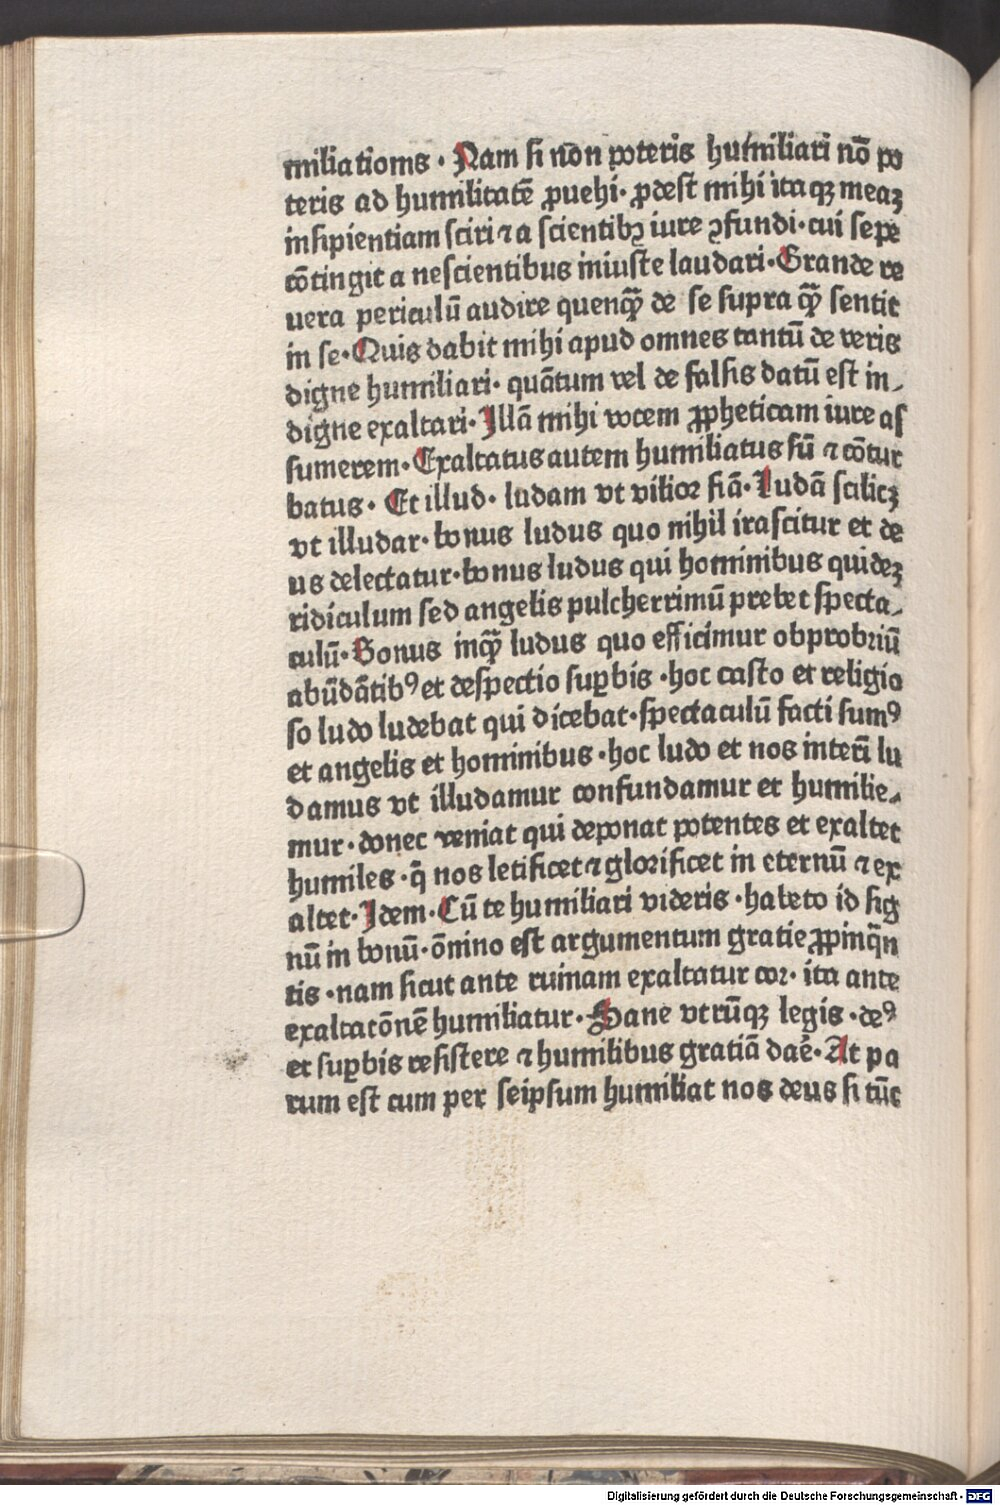 miliationis · Nam si non poteris humiliari nō po
teris ad humilitatē ꝓuehi · ꝓdest mihi itaqꝫ meaꝫ
insipientiam sciri ⁊ a scientibꝫ iure ꝯfundi · cui sepe
cōtingit a nescientibus iniuste laudari · Grande re
uera periculū audire quenqꝫ̄ de se supra qꝫ̄ sentit
in se · Quis dabit mihi apud omnes tantū de veris
digne humiliari · quātum vel de falsis datū est in⸗
digne exaltari · Illā mihi vocem ꝓpheticam iure as
sumerem · Exaltatus autem humiliatus sū ⁊ cōtur
batus · Et illud · ludam vt vilior fiā · Ludā scilicꝫ
vt illudar · bonus ludus quo nihil irascitur et de
us delectatur · bonus ludus qui hominibus quideꝫ
ridiculum sed angelis pulcherrimū prebet specta⸗
culū · Bonus inqꝫ̄ ludus quo efficimur obprobriū
abūdātibꝰ et despectio suꝑbis · hoc casto et religio
so ludo ludebat qui dicebat · spectaculū facti sumꝰ
et angelis et hominibus · hoc ludo et nos interī lu
damus vt illudamur confundamur et humilie⸗
mur · donec veniat qui deponat potentes et exaltet
humiles · q̄ nos letificet ⁊ glorificet in eternū ⁊ ex
altet · Idem · Cū te humiliari videris · habeto id sig
nū in bonū · ōnino est argumentum gratie ꝓpinq̄n
tis · nam sicut ante ruinam exaltatur cor · ita ante
exaltacōnē humiliatur · Sane vtrūqꝫ legis · deꝰ
et suꝑbis resistere ⁊ humilibus gratiā daē · At pa
rum est cum per seipsum humiliat nos deus si tūc
Digitalisierung gefördert durch die Deutsche Forschungsgemeinschaft - DFG